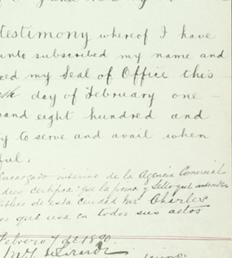 testimony whereof I have
unto subscribed my name and
xed my Seal of Office this
th day of February one
sand eight hundred and
y to serve and avail when
ful.
Encargado interino de la Agencia Comercial
dios certifica: que la firma y Sello que anteceden
de esta ciudad Mr Charles
os que usa en todos sus actos
Febrero 7 de 1890